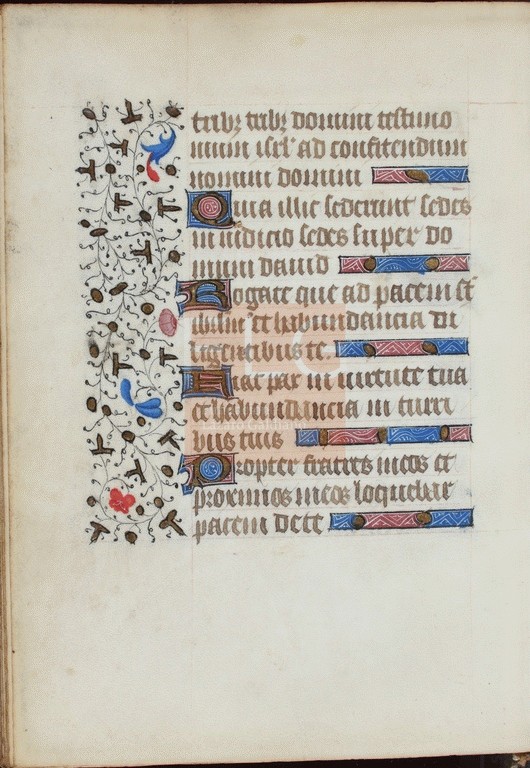 tribꝫ tribꝫ domini testimo
nium isrl' ad confitendum
nomini domini
Quia illic sederunt sedes
in iudicio sedes super do
mum dauid
Rogate que ad pacem st̄
iherlm̄ et habundancia di
ligentibus te.
Fiat pax in uirtute tua
et habundancia in turri
bus tuis
Propter fratres meos et
proximos meos loquebar
pacem de te